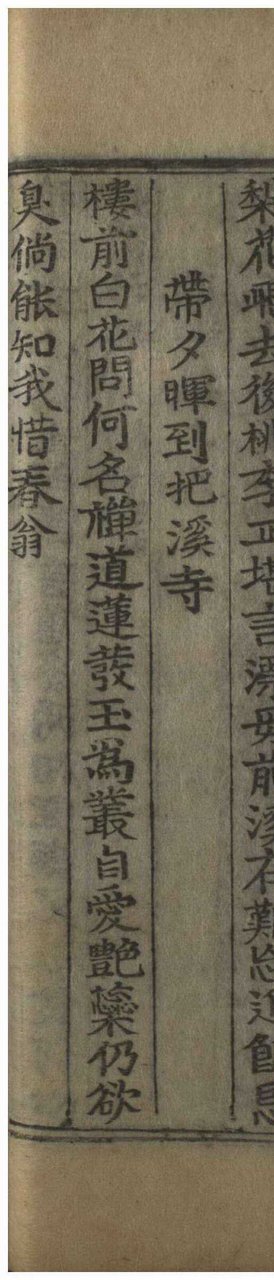 梨花飛去後桃李正堪言漂母前溪在難忘恩
帶夕暉到把溪寺
樓前白花問何名禪道蓮發玉爲叢自愛艶蘂仍欲
臭倘能知我惜春翁